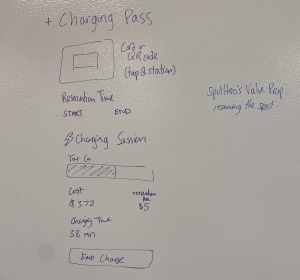 + Charging Pass
Card or
QR code
(tap @ station)
Reservation Time
START END
Charging Session
Cost
$3.72
reservation
fee
$5
Charging Time
38 min
End Charge
Value Prop
reserving the spot